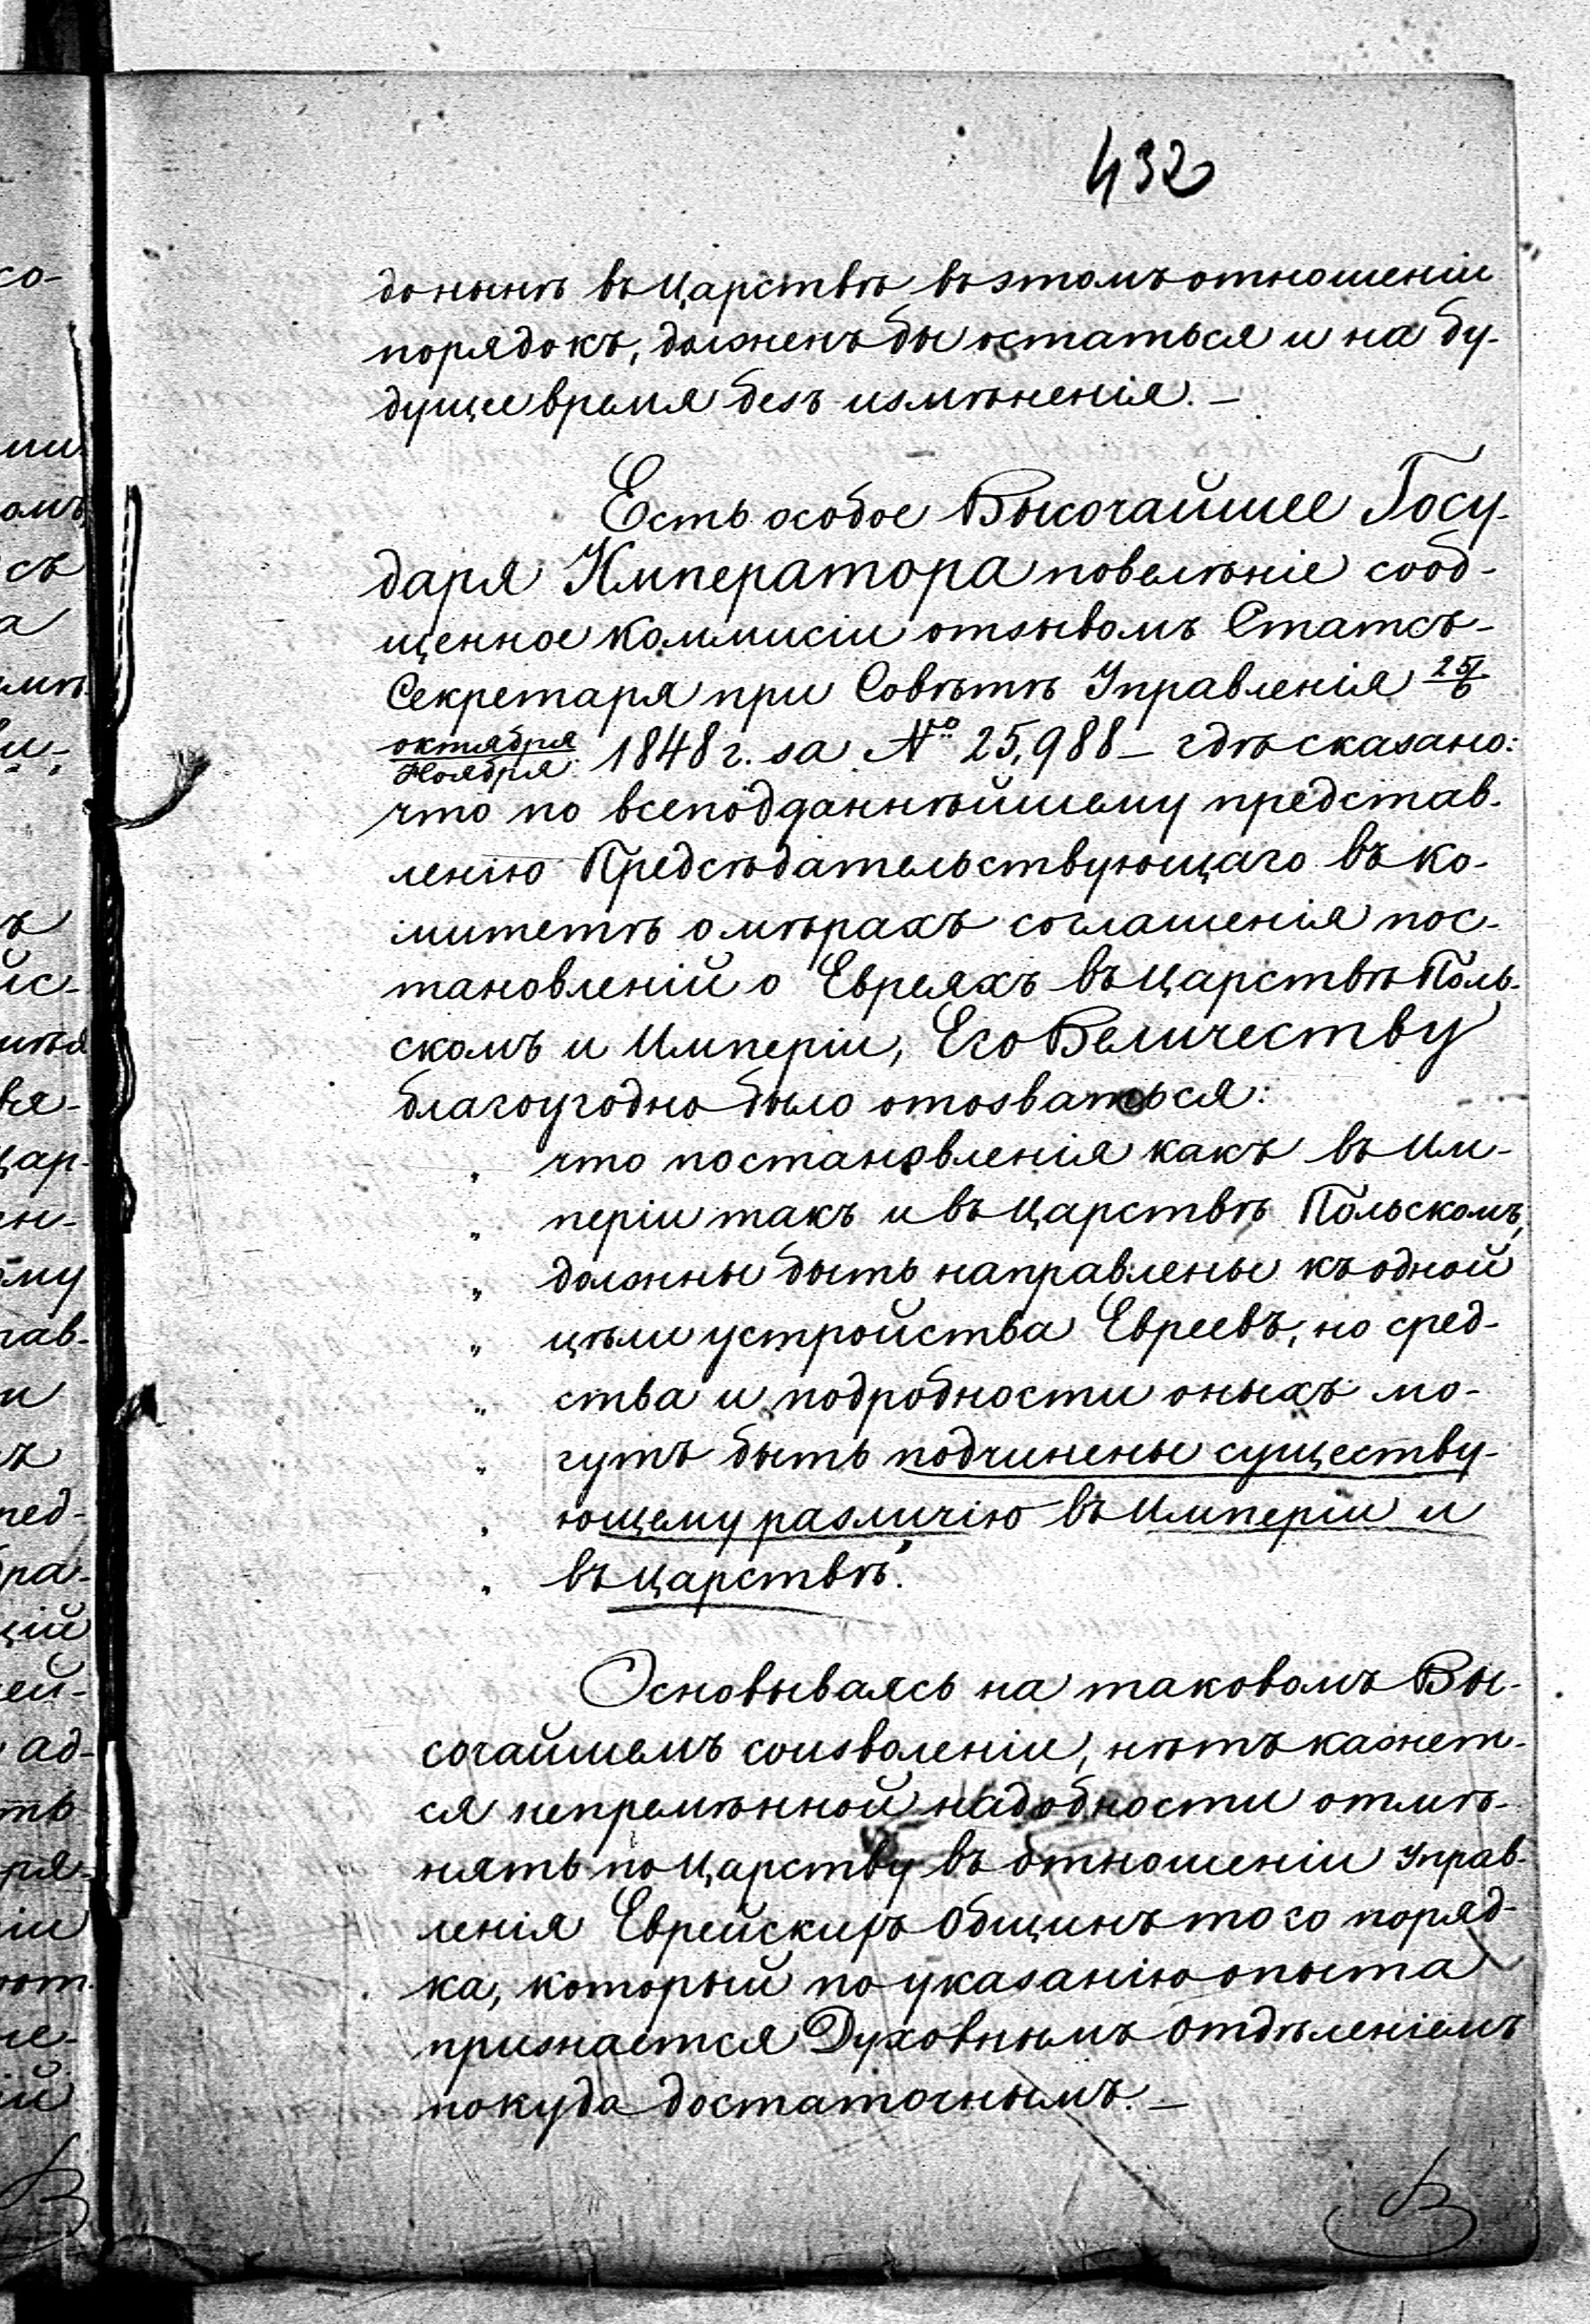 432
донынѣ въ Царствѣ въ этомъ отношеніи
порядокъ, долженъ бы остаться и на бу-
дущее время безъ измѣненія. –
Есть особое Высочайшее Госу-
даря Императора повелѣніе сооб-
щенное Коммисіи отзывомъ Статсъ-
Секретаря при Совѣтѣ Управленія 25/6
октября/Ноября 1848 г. за № 25,988 – гдѣ сказано:
что по всеподданнѣйшему представ-
ленію Предсѣдательствующаго въ Ко-
митетѣ о мѣрахъ соглашенія пос-
тановленій о Евреяхъ въ Царствѣ Поль-
скомъ и Имперіи, Его Величеству
благоугодно было отозваться:
„ что постановленія какъ въ Им-
„ періи такъ и въ Царствѣ Польскомъ,
„ должны быть направлены къ одной
„ цѣли устройства Евреевъ, но сред-
„ ства и подробности оныхъ мо-
„ гутъ быть подчинены существу-
„ ющему различію въ Имперіи и
„ въ Царствѣ".
Основываясь на таковомъ Вы-
сочайшемъ соизволеніи, нѣтъ кажет-
ся непремѣнной надобности отмѣ-
нять по Царству въ отношеніи Управ-
ленія Еврейскихъ Общинъ того поряд-
ка, который по указанію опыта
признается Духовнымъ Отдѣленіемъ
покуда достаточнымъ. –